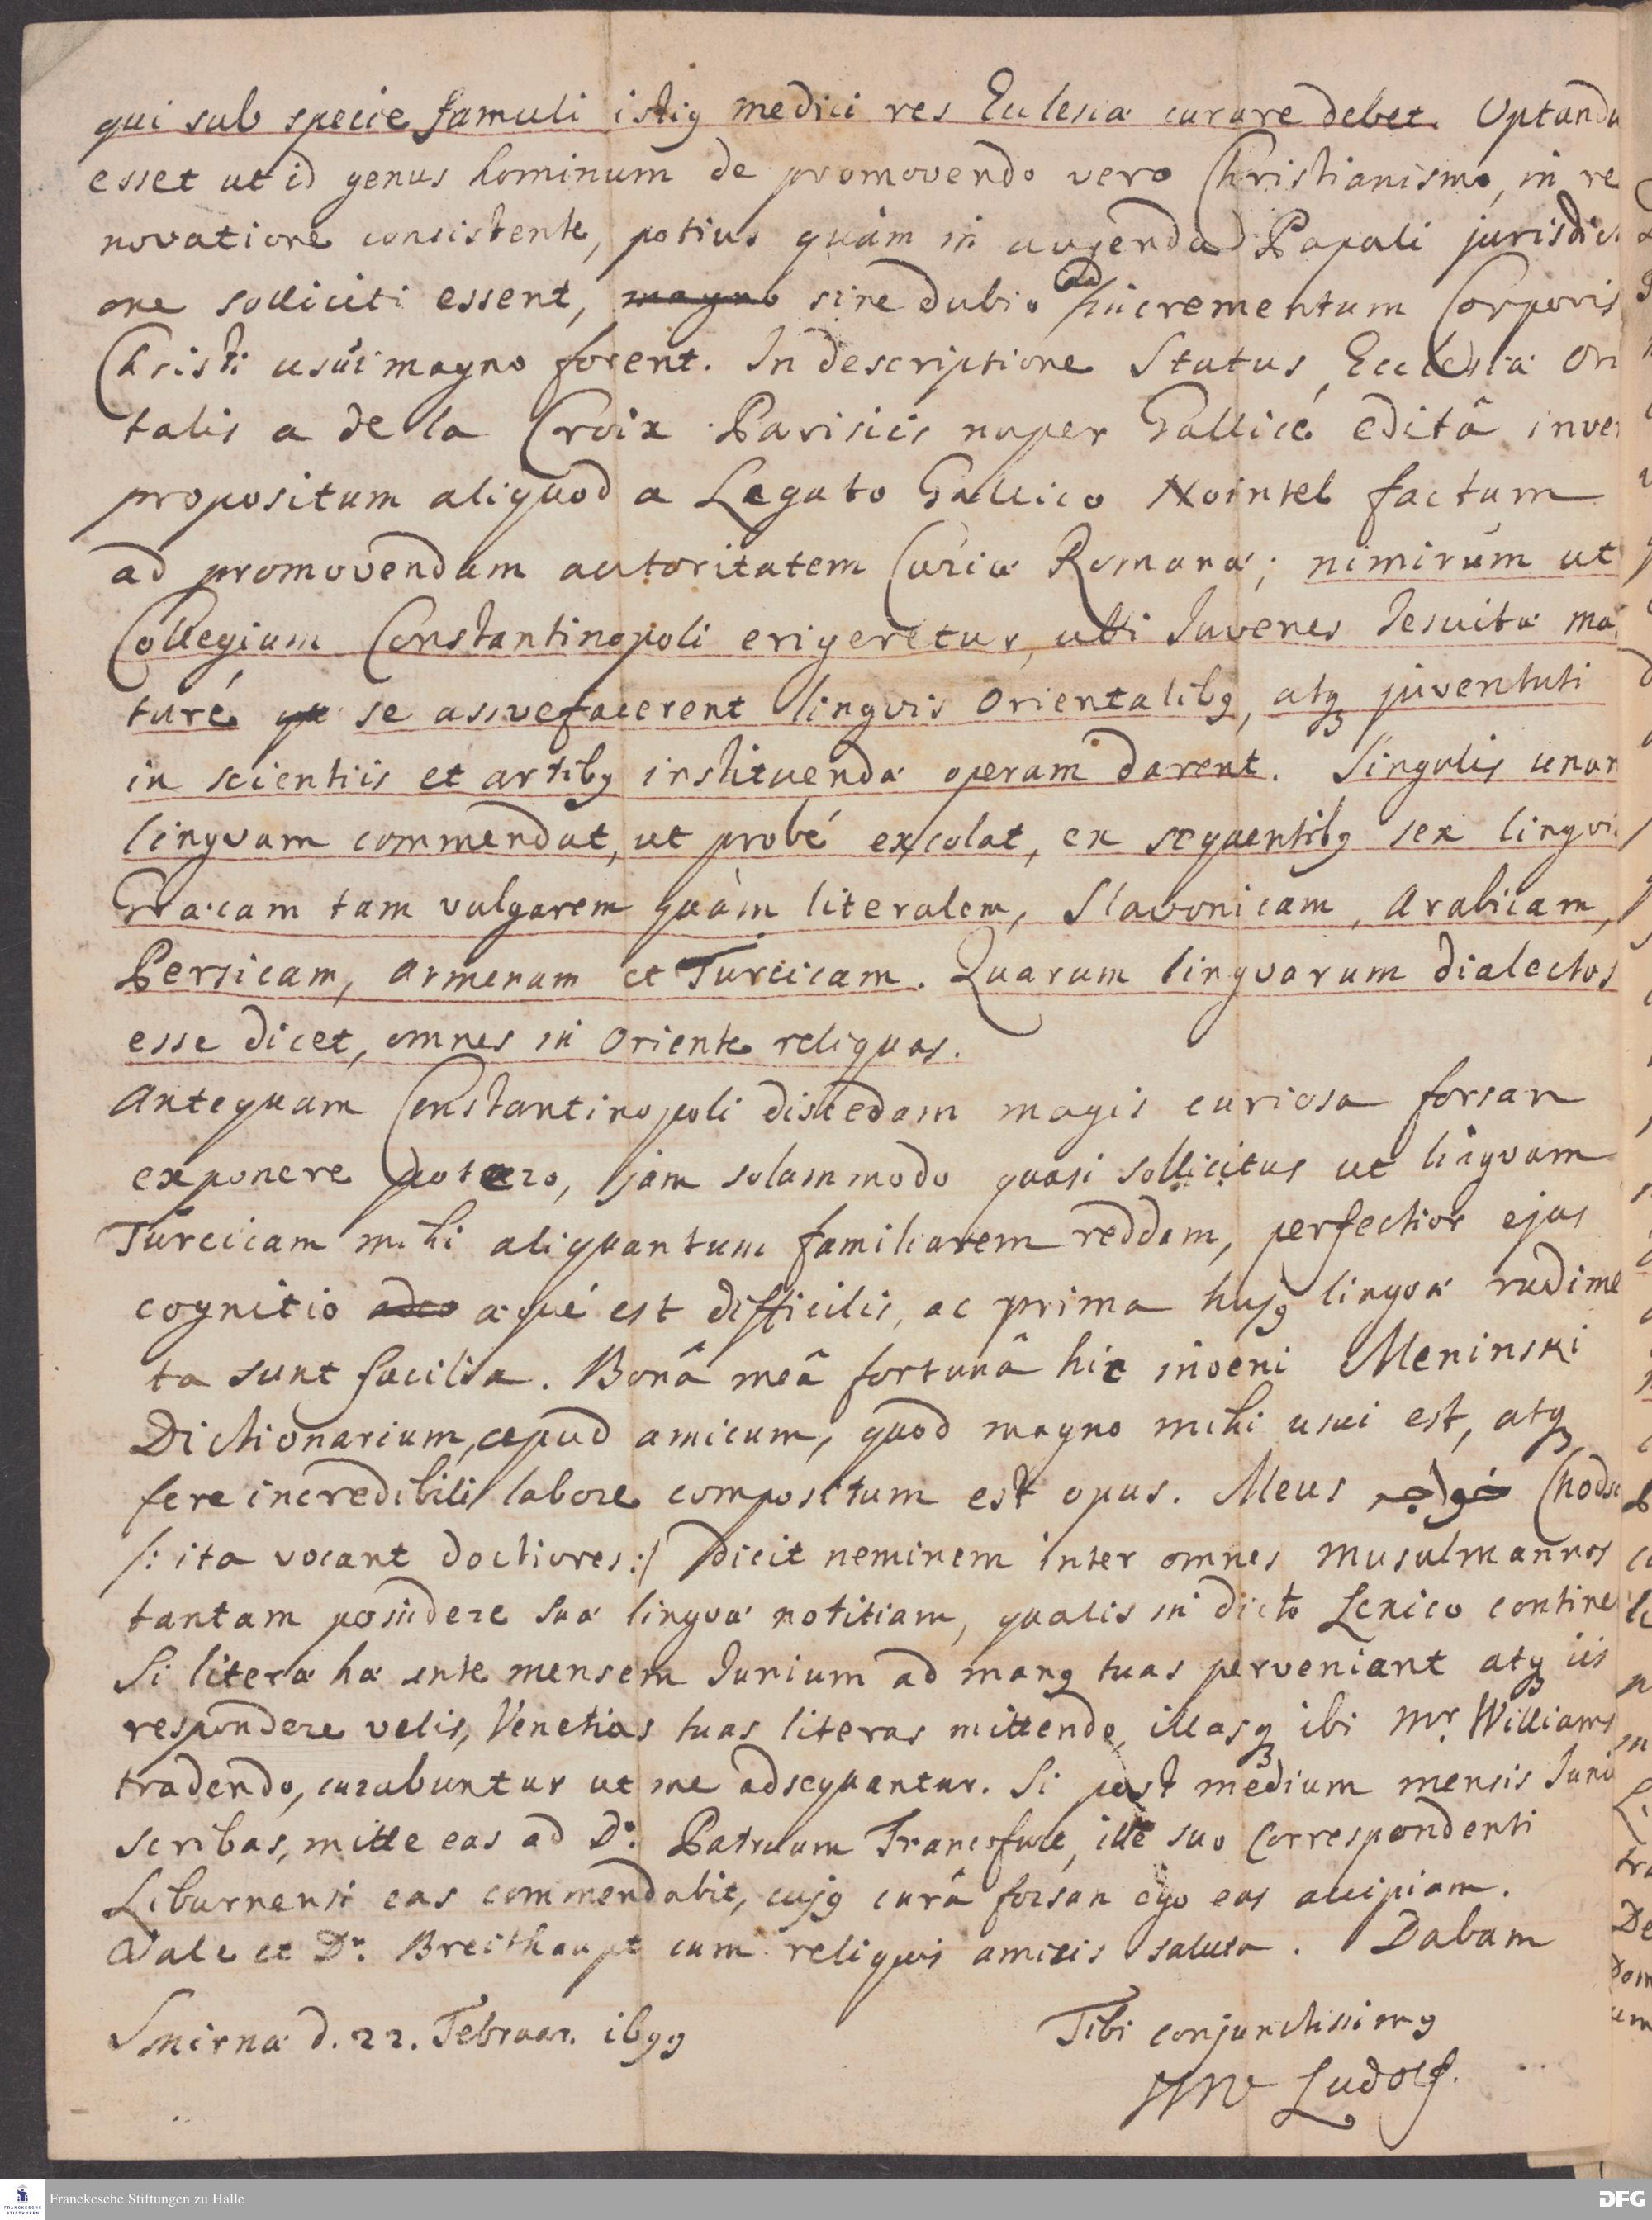 qui sub specie famuli istiq medici res Ecclesiæ curare debet. Optandu
esset ut id genus hominum de promovendo vero Christianismo, in re
novatione consistente, potius quàm in augenda Papali jurisdicti
one solliciti essent, magno sine dubio ad incrementum Corporis
Christi usui magno forent. In descriptione Status Ecclesiæ Ori
talis a de la Croix Parisiis nuper Gallicé editâ inve
propositum aliquod a Legato Gallico Nointel factum
ad promovendam autoritatem Curiæ Romanæ; nimirùm ut
Collegium Constantinopoli erigeretur, ubi Juvenes Jesuitæ ma
turé qu se assvefacerent lingvis Orientalibq, atq juventuti
in scientiis et artibq instituendæ operam darent. Singulis unam
lingvam commendat, ut probé excolat, ex seqventibq sex lingvi
Græcam tam vulgarem quàm literalem, Slavonicam, Arabicam,
Persicam, Armenam et Turcicam. Quarum lingvarum dialectos
esse dicet, omnes in Oriente reliquas.
Antequam Constantinopoli discedam magis curiosa forsan
exponere potero, jam solummodo quasi sollicitus ut lingvam
Turcicam mihi aliquantum familiarem reddam, perfectior ejus
cognitio adeo æqué est difficilis, ac prima hujq lingvæ rudime
ta sunt facilia. Bonâ meâ fortunâ hic inveni Meninski
Dictionarium, apud amicum, quod magno mihi usui est, atq
fere incredibili labore compositum est opus. Meus خواجه Chods
/: ita vocant doctiores :/ dicit neminem inter omnes Musulmannos
tantam possidere suæ lingvæ notitiam, qualis in dicto Lexico contine
Si literæ hæ ante mensem Junium ad manq tuas perveniant atq iis
respondere velis, Venetias tuas literas mittendo, illasq ibi Mr. Williams
tradendo, curabuntur ut me adseqvantur. Si post medium mensis Junii
scribas, mitte eas ad Dn. Patruum Francofurt, ille suo Correspondenti
Liburnensi eas commendabit, cujq curâ forsan ego eas accipiam.
Vale et Dn. Breithaupt cum reliquis amicis saluta. Dabam
Smirnæ d. 22. Februar. 1699
Tibi conjunctissimq
HW Ludolf.
Franckesche Stiftungen zu Halle
FRANCKESCHE STIFTUNGEN
DFG